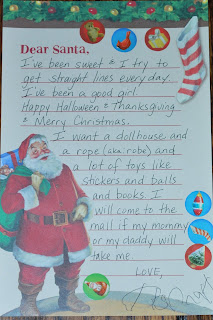 Dear Santa,
I've been sweet & I try to
get straight lines everyday.
I've been a good girl.
Happy Halloween & Thanksgiving
& Merry Christmas.
I want a dollhouse and
a rope (aka: robe) and
a lot of toys like
stickers and balls
and books. I
will come to the
mall if my mommy
or my daddy will
take me.
LOVE,